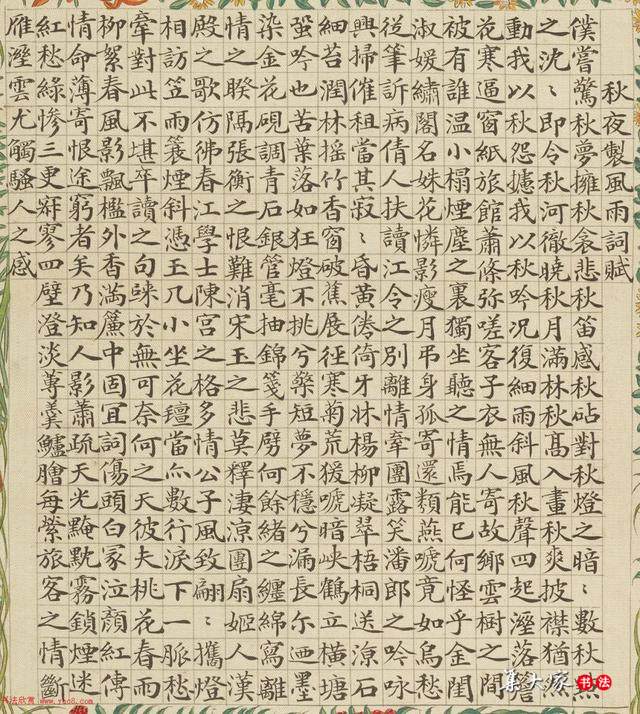 秋夜製風雨詞賦
僕嘗驚秋夢擁秋衾悲秋笛感秋砧對秋燈之暗〻數秋點
之沈〻即令秋河徹曉秋月滿林秋高入畫秋爽披襟猶
動我以秋怨攄我以秋吟况復細雨斜風秋聲四起溼落簷
花寒逼窗紙旅館蕭條弥嗟客子衣無人寄故鄉雲樹之間
被有誰温小榻煙塵之裏獨坐聽之情焉能已何怪乎金閨
淑媛繡閣名姝花憐影瘦月弔身孤寄還類燕啼竟如烏愁
從筆訴病倩人扶讀江令之別離情牽團露笑潘郎之吟咏
興掃催租當其寂〻昏黃倦倚牙牀楊柳凝翠梧桐送涼石
細苔潤林摇竹香窗破蕉展征寒菊荒猨啼暗峽鶴立横塘
蛩吟也苦葉落如狂燈不挑兮檠短夢不穩兮漏長尔迺墨
染金花硯調青石銀管毫抽錦箋手劈何餘緒之纏綿寫離
情之暌隔張衡之恨難消宋玉之悲莫釋淒涼團扇姬人漢
殿之歌仿彿春江學士陳宮之格多情公子風致翩〻攜燈
相訪笠雨簑煙斜憑玉几小坐花氊當亦數行淚下一脈愁
牽對此不堪卒讀之句竦於無可奈何之天彼夫桃花春雨
柳絮春風影飄檻外香滿簾中固宜詞傷頭白冢泣顏紅傳
情命薄寄恨途窮者矣乃知人影蕭疏天光黯黕霧鎖煙迷
紅愁綠慘三更寂寥四壁澄淡蓴羹鱸膾每縈旅客之情斷
雁溼雲尤觸騷人之感
集大家 书法
书法欣赏 www.yac8.com